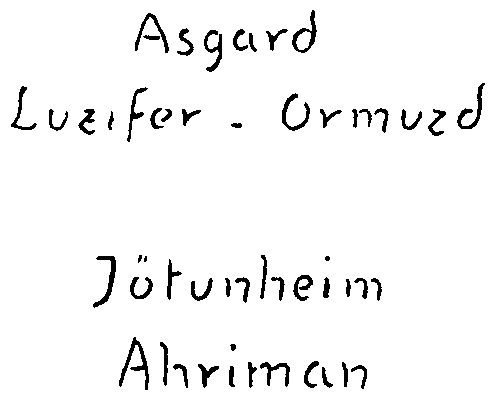 Asgard
Luzifer - Ormuzd
Jötunheim
Ahriman